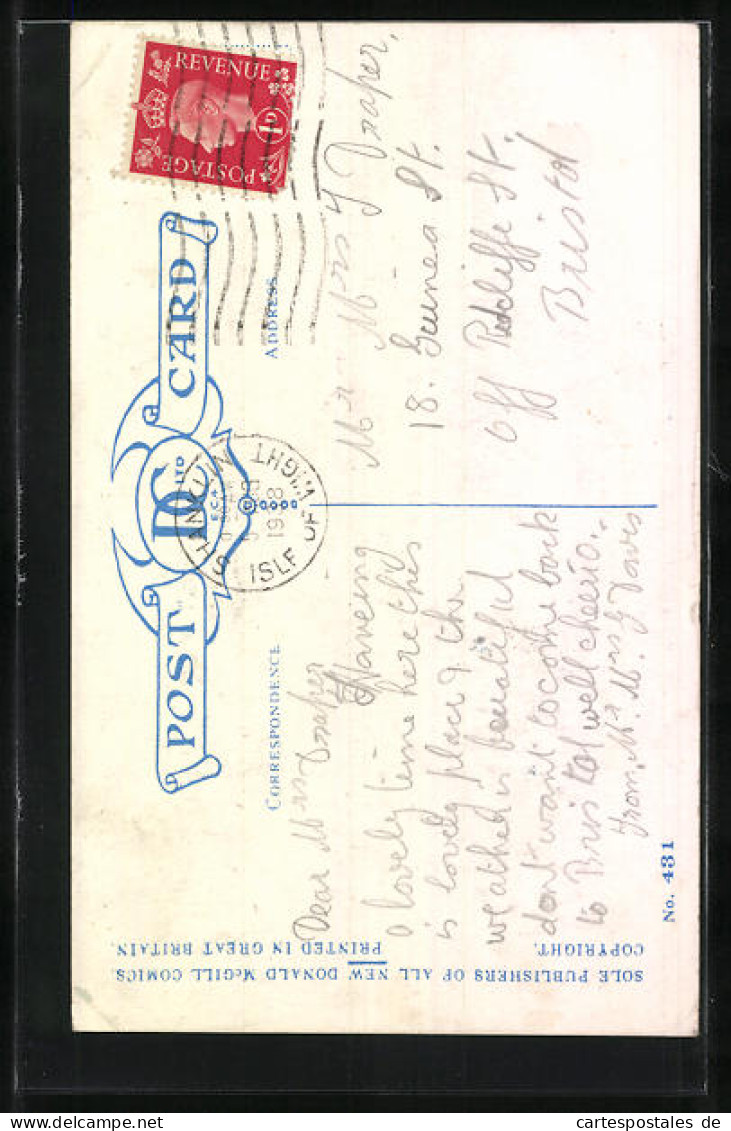 POST CARD
DC
LTD
E.C.4
CORRESPONDENCE
ADDRESS
REVENUE
1D
POSTAGE
SHANKLIN
1938
ISLE OF WIGHT
Dear Mrs Draper
Haveing
a lovely time here this
is lovely place & the
weather is beautiful
dont want to come back
to Bristol well cheerio.
From, Mr. Mrs G Davis
Mr Mrs J Draper,
18. Guinea St.
off Redcliffe St.
Bristol
SOLE PUBLISHERS OF ALL NEW DONALD McGILL COMICS.
COPYRIGHT. PRINTED IN GREAT BRITAIN.
No. 431
www.cartespostales.de